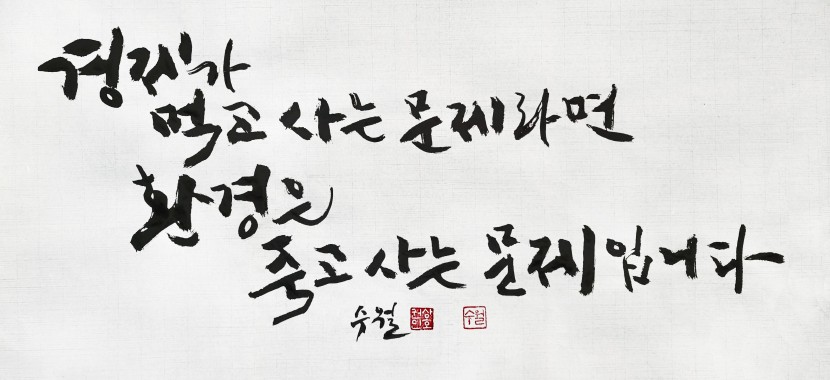 경제가
먹고 사는 문제라면
환경은
죽고 사는 문제입니다
수월
수월